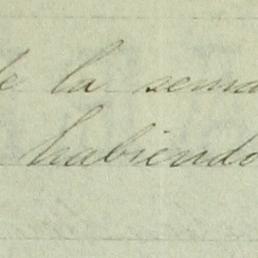 de la sema
habiendo